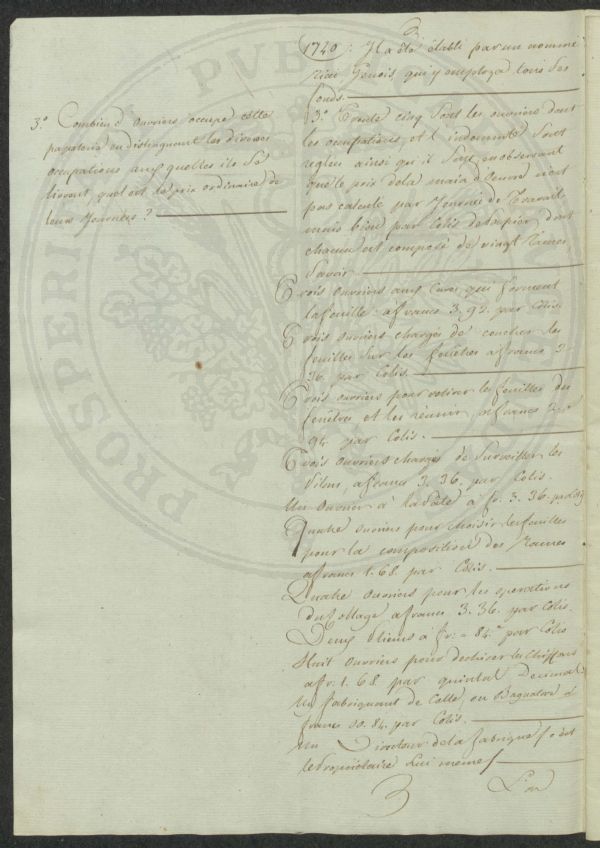 3.° Combien d'ouvriers occupe cette
papeterie en distinguant les diverses
occupations aux quelles ils se
livrent, quel est le prix ordinaire de
leurs journées ?
1740 : Il a été établi par un nommé
Génois, qui y employa tous ses
fonds.
3.° Trente cinq sont les ouvriers dont
les occupations, et l'indemnité sont
reglées ainsi qu'il suit, en observant
que le prix de la main d'œuvre n'est
pas calculé par journée de Travail
mais bien par Colis de papier, dont
chacun est composé de vingt Rames
Savoir
Trois ouvriers aux Cuves qui forment
la feuille a francs 3. 92. par Colis.
Trois ouvriers chargés de coucher les
feuilles sur les feutres a francs 3.
36. par Colis.
Trois ouvriers pour retirer les feuilles des
feutres et les réunir, a francs 2.
94. par Colis.
Trois ouvriers chargés de surveiller les
Pilons, a francs 3. 36. par Colis.
Un ouvrier à la a fr. 3. 36. par Colis
Quatre ouvriers pour choisir les feuilles
pour la composition des Rames
a francs 1. 68. par Colis.
Quatre ouvriers pour les operations
du Collage a francs. 3. 36. par Colis.
Deux à fr. = 84.c par Colis
Huit ouvriers pour dechirer les chiffons
a fr. 1. 68. par quintal Decimal
Un fabriquant de Colle, ou à
francs 84. par Colis.
Un Directeur de la fabrique, c'est
le Propriétaire Lui meme
L'on
PROSPERI
PVB